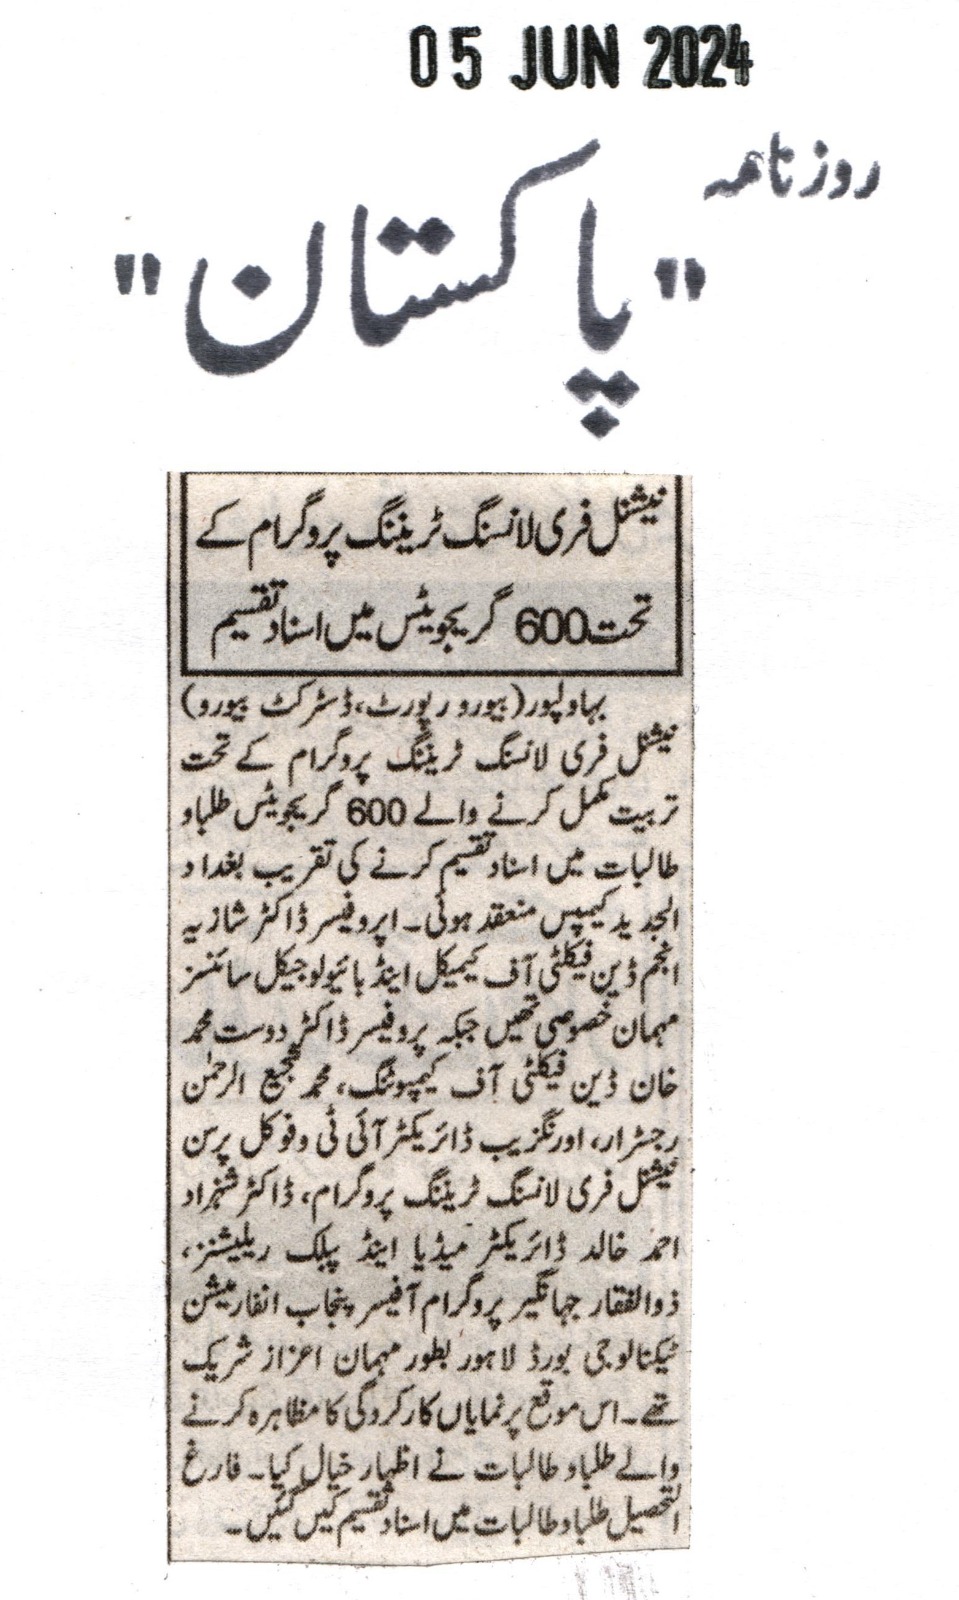 05 JUN 2024
روزنامہ
"پاکستان"
نیشنل فری لانسنگ ٹریننگ پروگرام کے
تحت 600 گریجویٹس میں اسناد تقسیم
بہاولپور (بیورو رپورٹ، ڈسٹرکٹ بیورو)
نیشنل فری لانسنگ ٹریننگ پروگرام کے تحت
تربیت مکمل کرنے والے 600 گریجویٹس طلباو
طالبات میں اسناد تقسیم کرنے کی تقریب بغداد
الجدید کیمپس منعقد ہوئی۔ اپروفیسر ڈاکٹر شازیہ
انجم ڈین فیکلٹی آف کیمیکل اینڈ بائیولوجیکل سائنسز
مہمان خصوصی تھیں جبکہ پروفیسر ڈاکٹر دوست محمد
خان ڈین فیکلٹی آف کیمپوٹنگ، محمد شجیع الرحمٰن
رجسٹرار، اورنگزیب ڈائریکٹر آئی ٹی وفوکل پرسن
نیشنل فری لانسنگ ٹریننگ پروگرام، ڈاکٹر شہزاد
احمد خالد ڈائریکٹر میڈیا اینڈ پبلک ریلیشنز،
ذوالفقار جہانگیر پروگرام آفیسر پنجاب انفارمیشن
ٹیکنالوجی بورڈ لاہور بطور مہمان اعزاز شریک
تھے۔ اس موقع پر نمایاں کارکردگی کا مظاہرہ کرنے
والے طلباو طالبات نے اظہار خیال کیا۔ فارغ
التحصیل طلباو طالبات میں اسناد تقسیم کیں گئیں۔